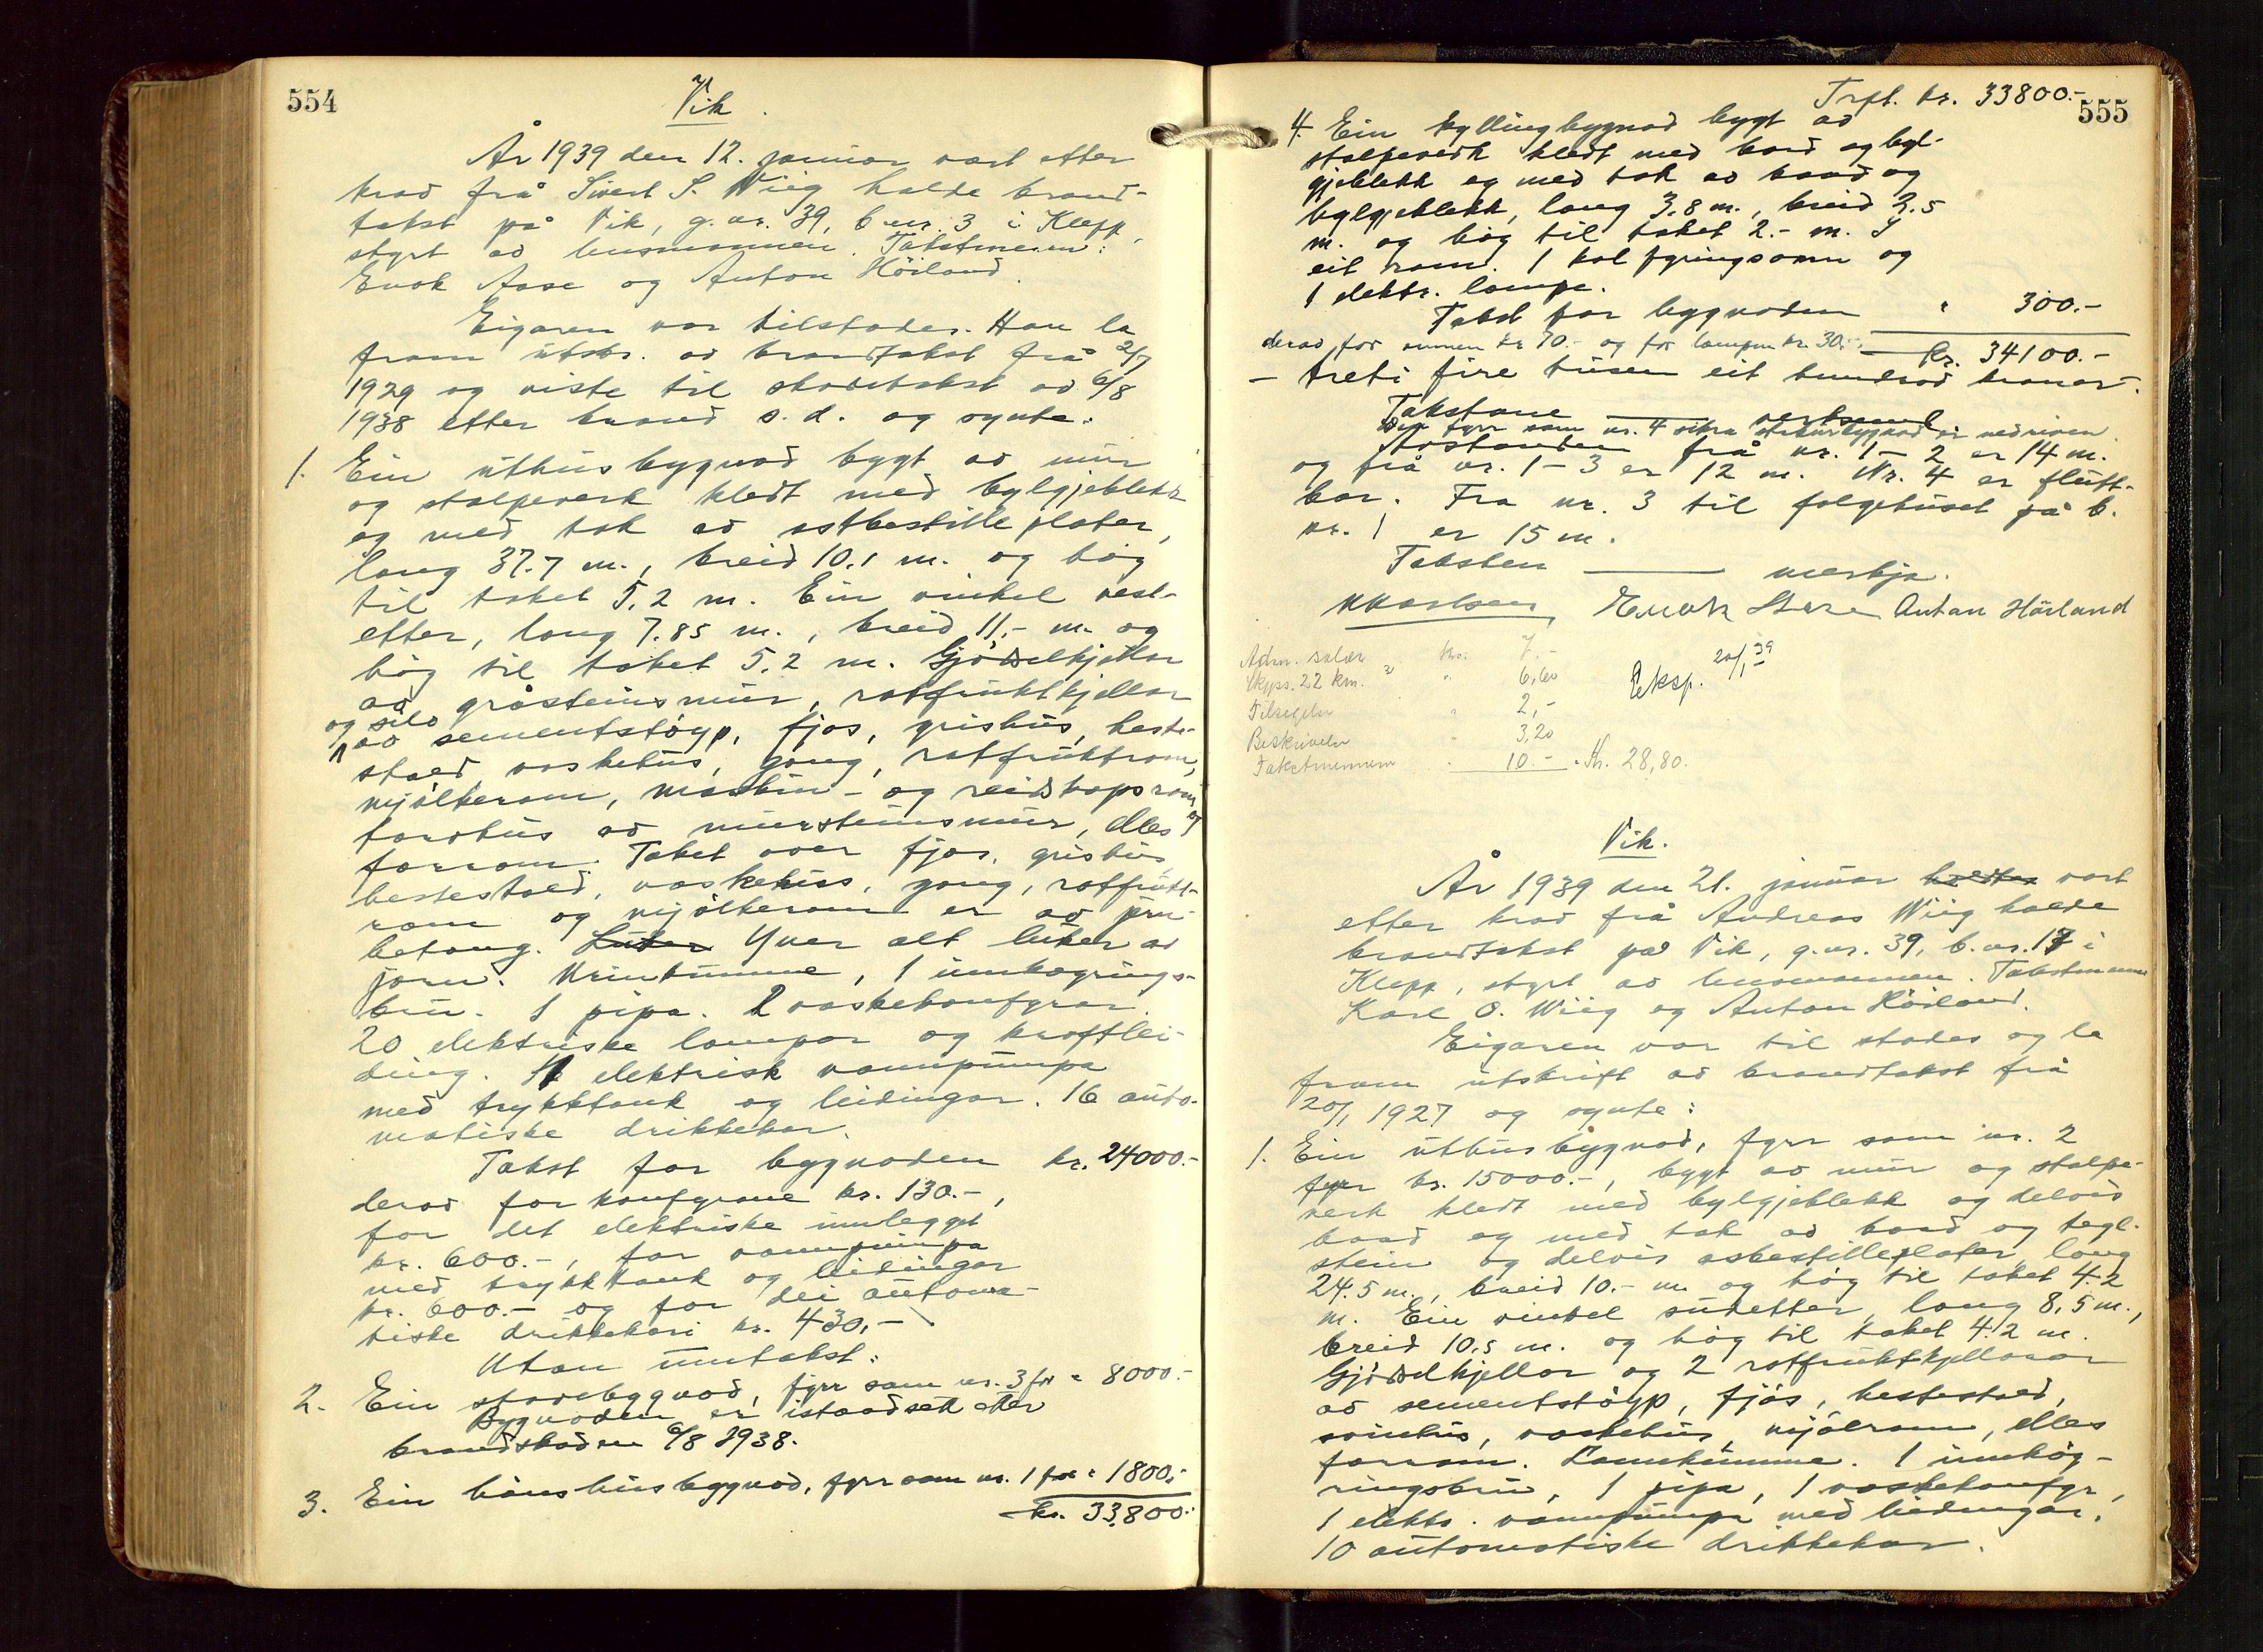 554
Vik.
År 1939 den 12. januar vart etter
krav frå Sivert S. Wiig halde brand-
takst på Vik, g.nr. 39, b.nr. 3 i Klepp,
styrt av lensmannen. Takstmenn:
Enok Aase og Anton Höiland.
Eigaren var tilstades. Han la
fram utskr. av brandtakst frå 2/7
1929 og viste til skadetakst av 6/8
1938 etter brand s.d. og synte:
1. Ein uthusbygnad bygt av mur
og stolpeverk kledt med bylgjeblekk
og med tak av astbestille plater,
lang 37.7 m., breid 10.1 m. og høg
til taket 5.2 m. Ein vinkel vest-
etter, lang 7.85 m., breid 11,- m. og
høg til taket 5.2 m. Gjødselkjellar
av gråsteinsmur, rotfruktkjellar
og silo
av sementstöyp, fjos, grishus, heste-
stald, vaskehus, gong, rotfruktrom,
mjölkerom, maskin- og reidskapsrom og
torvhus av mursteinsmur, elles
forrom. Taket over fjos, grishus,
hestestald, vaskehus, gong, rotfrukt-
rom og mjölkerom er av jrn-
betong. Luker Yver alt luker av
jorn. Urinkumme, 1 innkøyrings-
bru. 1 pipa. 2 vaskekomfyrar.
20 elektriske lampor og kraftlei-
ding. 1 elektrisk vannpumpa
med trykktank og leidingar. 16 auto-
matiske drikkekar.
Takst for bygnaden kr. 24000.-
derav for komfyrane kr. 130.-,
for det elektriske innlegget
kr. 600.-, for vannpumpa
med trykktank og leidingar
kr. 600.- og for dei automa-
tiske drikkekari kr. 430,-
Utan umtakst:
2. Ein stovebygnad, fyrr som nr. 3 for " 8000.-
Bygnaden er istandsett etter
brandskaden 6/8 1938.
3. Ein hönshusbygnad, fyrr som nr. 1 for " 1800,-
kr. 33,800.-
555
Trpt. kr. 33800.-
4. Ein kyllingbygnad bygt av
stolpeverk kledt med bord og byl-
gjeblekk og med tak av bord og
bylgjeblekk, lang 3.8 m., breid 3.5
m. og høg til taket 2.- m. I
eit rom. 1 kol fyringsomn og
1 elektr. lampe.
Takst for bygnaden " 300.-
derav for omnen kr 70.- og for lampen kr. 30.-
kr. 34100.-
- treti fire tusen eit hundrad kronor -.
Takstane vertsemd
Den fyrr som nr. 4 er nedriven.
Avstanden frå nr. 1 - 2 er 14 m.
og frå nr. 1 - 3 er 12 m. Nr. 4 er flutt-
bar. Fra nr. 3 til folgehuset på b.
nr. 1 er 15 m.
Taksten merkja.
Enok Anton Höiland
Adm. salær kr. 7.-
Skyss. 22 km. " 6,60
Tilsegeler " 2,-
Beskrivelse " 3,20
Takstmennene " 10.- . Kr. 28,80.
Eksp. 20/1 39
Vik.
År 1939 den 21. januar vart
etter krav frå Andreas Wiig halde
brandtakst på Vik, g.nr. 39, b.nr. 17 i
Klepp, styrt av lensmannen. Takstmenn
Karl O. Wiig og Anton Höiland.
Eigaren var til stades og la
fram utskrift av brandtakst frå
20/1 1927 og synte:
1. Ein uthusbygnad, fyrr som nr. 2
fyrr kr. 15000.-, bygt av mur og stolpe-
verk kledt med bylgjeblekk og delvis
bord og med tak av bord og tegl-
stein og delvis asbestilleplater, lang
24.5 m., breid 10.- m. og høg til taket 4.2
m. Ein vinkel sudetter, lang 8,5 m.,
breid 10,5 m. og høg til taket 4.2 m.
Gjødselkjellar og 2 rotfruktkjellarar
av sementstöyp, fjós, hestestald,
svinhus, vaskehus, mjölrom, elles
forrom. Landkumme. 1 innkøy-
ringsbru, 1 pipa, 1 vaskekomfyr,
1 elektr. vannpumpe med leidingar,
10 automatiske drikkekar.